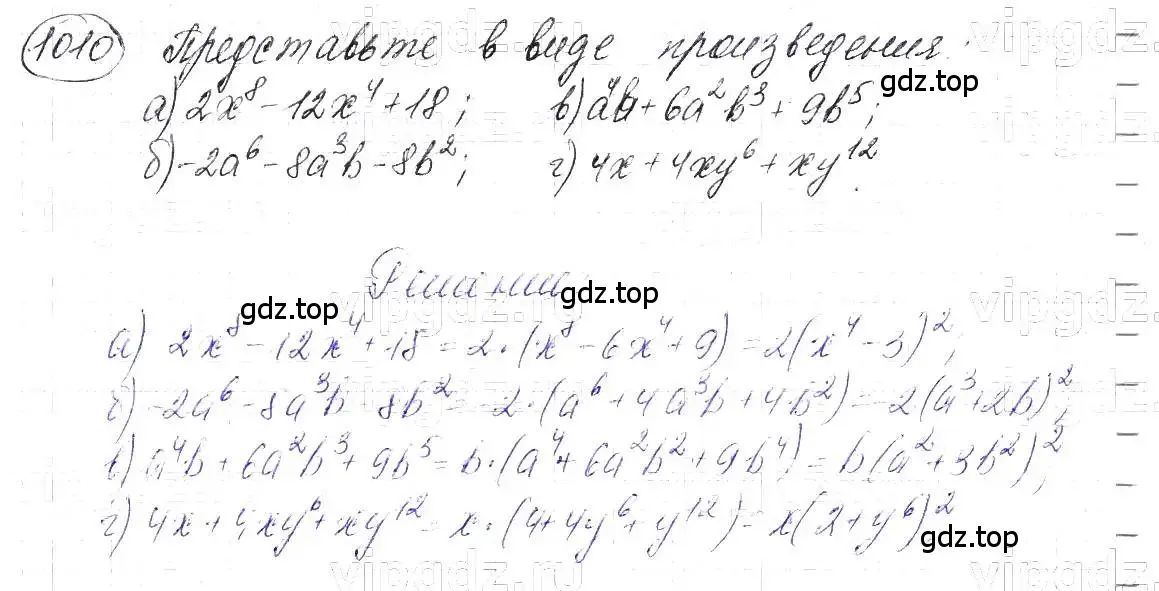 1010 Представьте в виде произведения:
а) 2x⁸ - 12x⁴ + 18; в) a⁴b + 6a²b³ + 9b⁵;
б) -2a⁶ - 8a³b - 8b²; г) 4x + 4xy⁶ + xy¹²
gdz.top
gdz.top
Решение
gdz.top
gdz.top
а) 2x⁸ - 12x⁴ + 18 = 2·(x⁸ - 6x⁴ + 9) = 2(x⁴ - 3)²;
б) -2a⁶ - 8a³b - 8b² = -2·(a⁶ + 4a³b + 4b²) = -2(a³ + 2b)²;
в) a⁴b + 6a²b³ + 9b⁵ = b·(a⁴ + 6a²b² + 9b⁴) = b(a² + 3b²)²;
г) 4x + 4xy⁶ + xy¹² = x·(4 + 4y⁶ + y¹²) = x(2 + y⁶)²
gdz.top
vipgdz.ru
vipgdz.ru